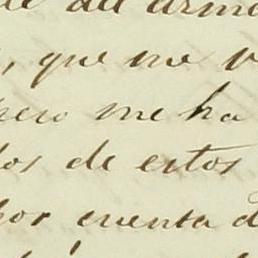 del arm
, que me v
pero me ha
dos de estos
por cuenta d